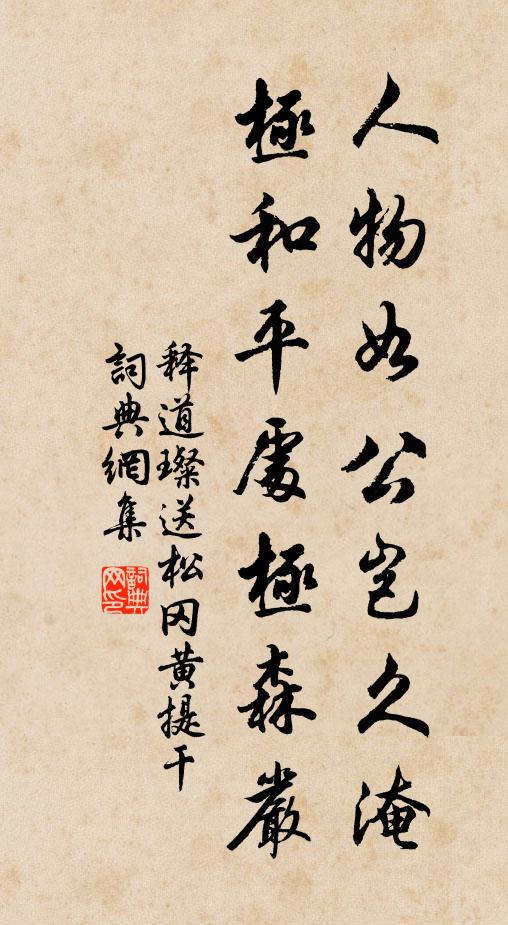 人物如公岂久淹
極和平處極森嚴
释道璨送松冈黄提干
詞典網集
詞典网印